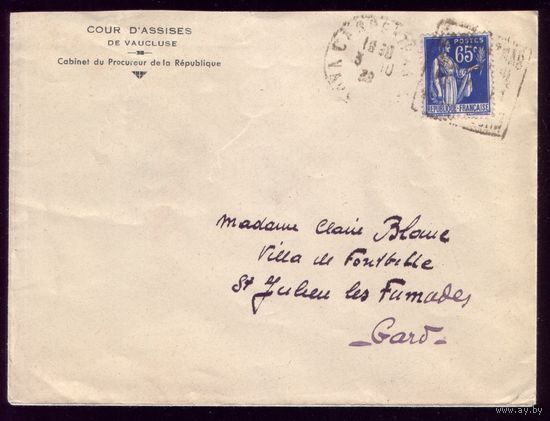 COUR D'ASSISES
DE VAUCLUSE
Cabinet du Procureur de la République
18 30
3 10
38
POSTES
65c
REPUBLIQUE-FRANCAISE
Madame Claire Blanc
Villa de Fontbelle
St Julien les Fumades
Gard
www.ay.by